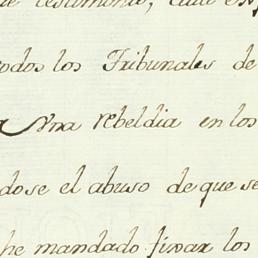 testimonio,
odos los Tribunales de
Una rebeldia en los
dose el abuso de que se
he mandado fixar los